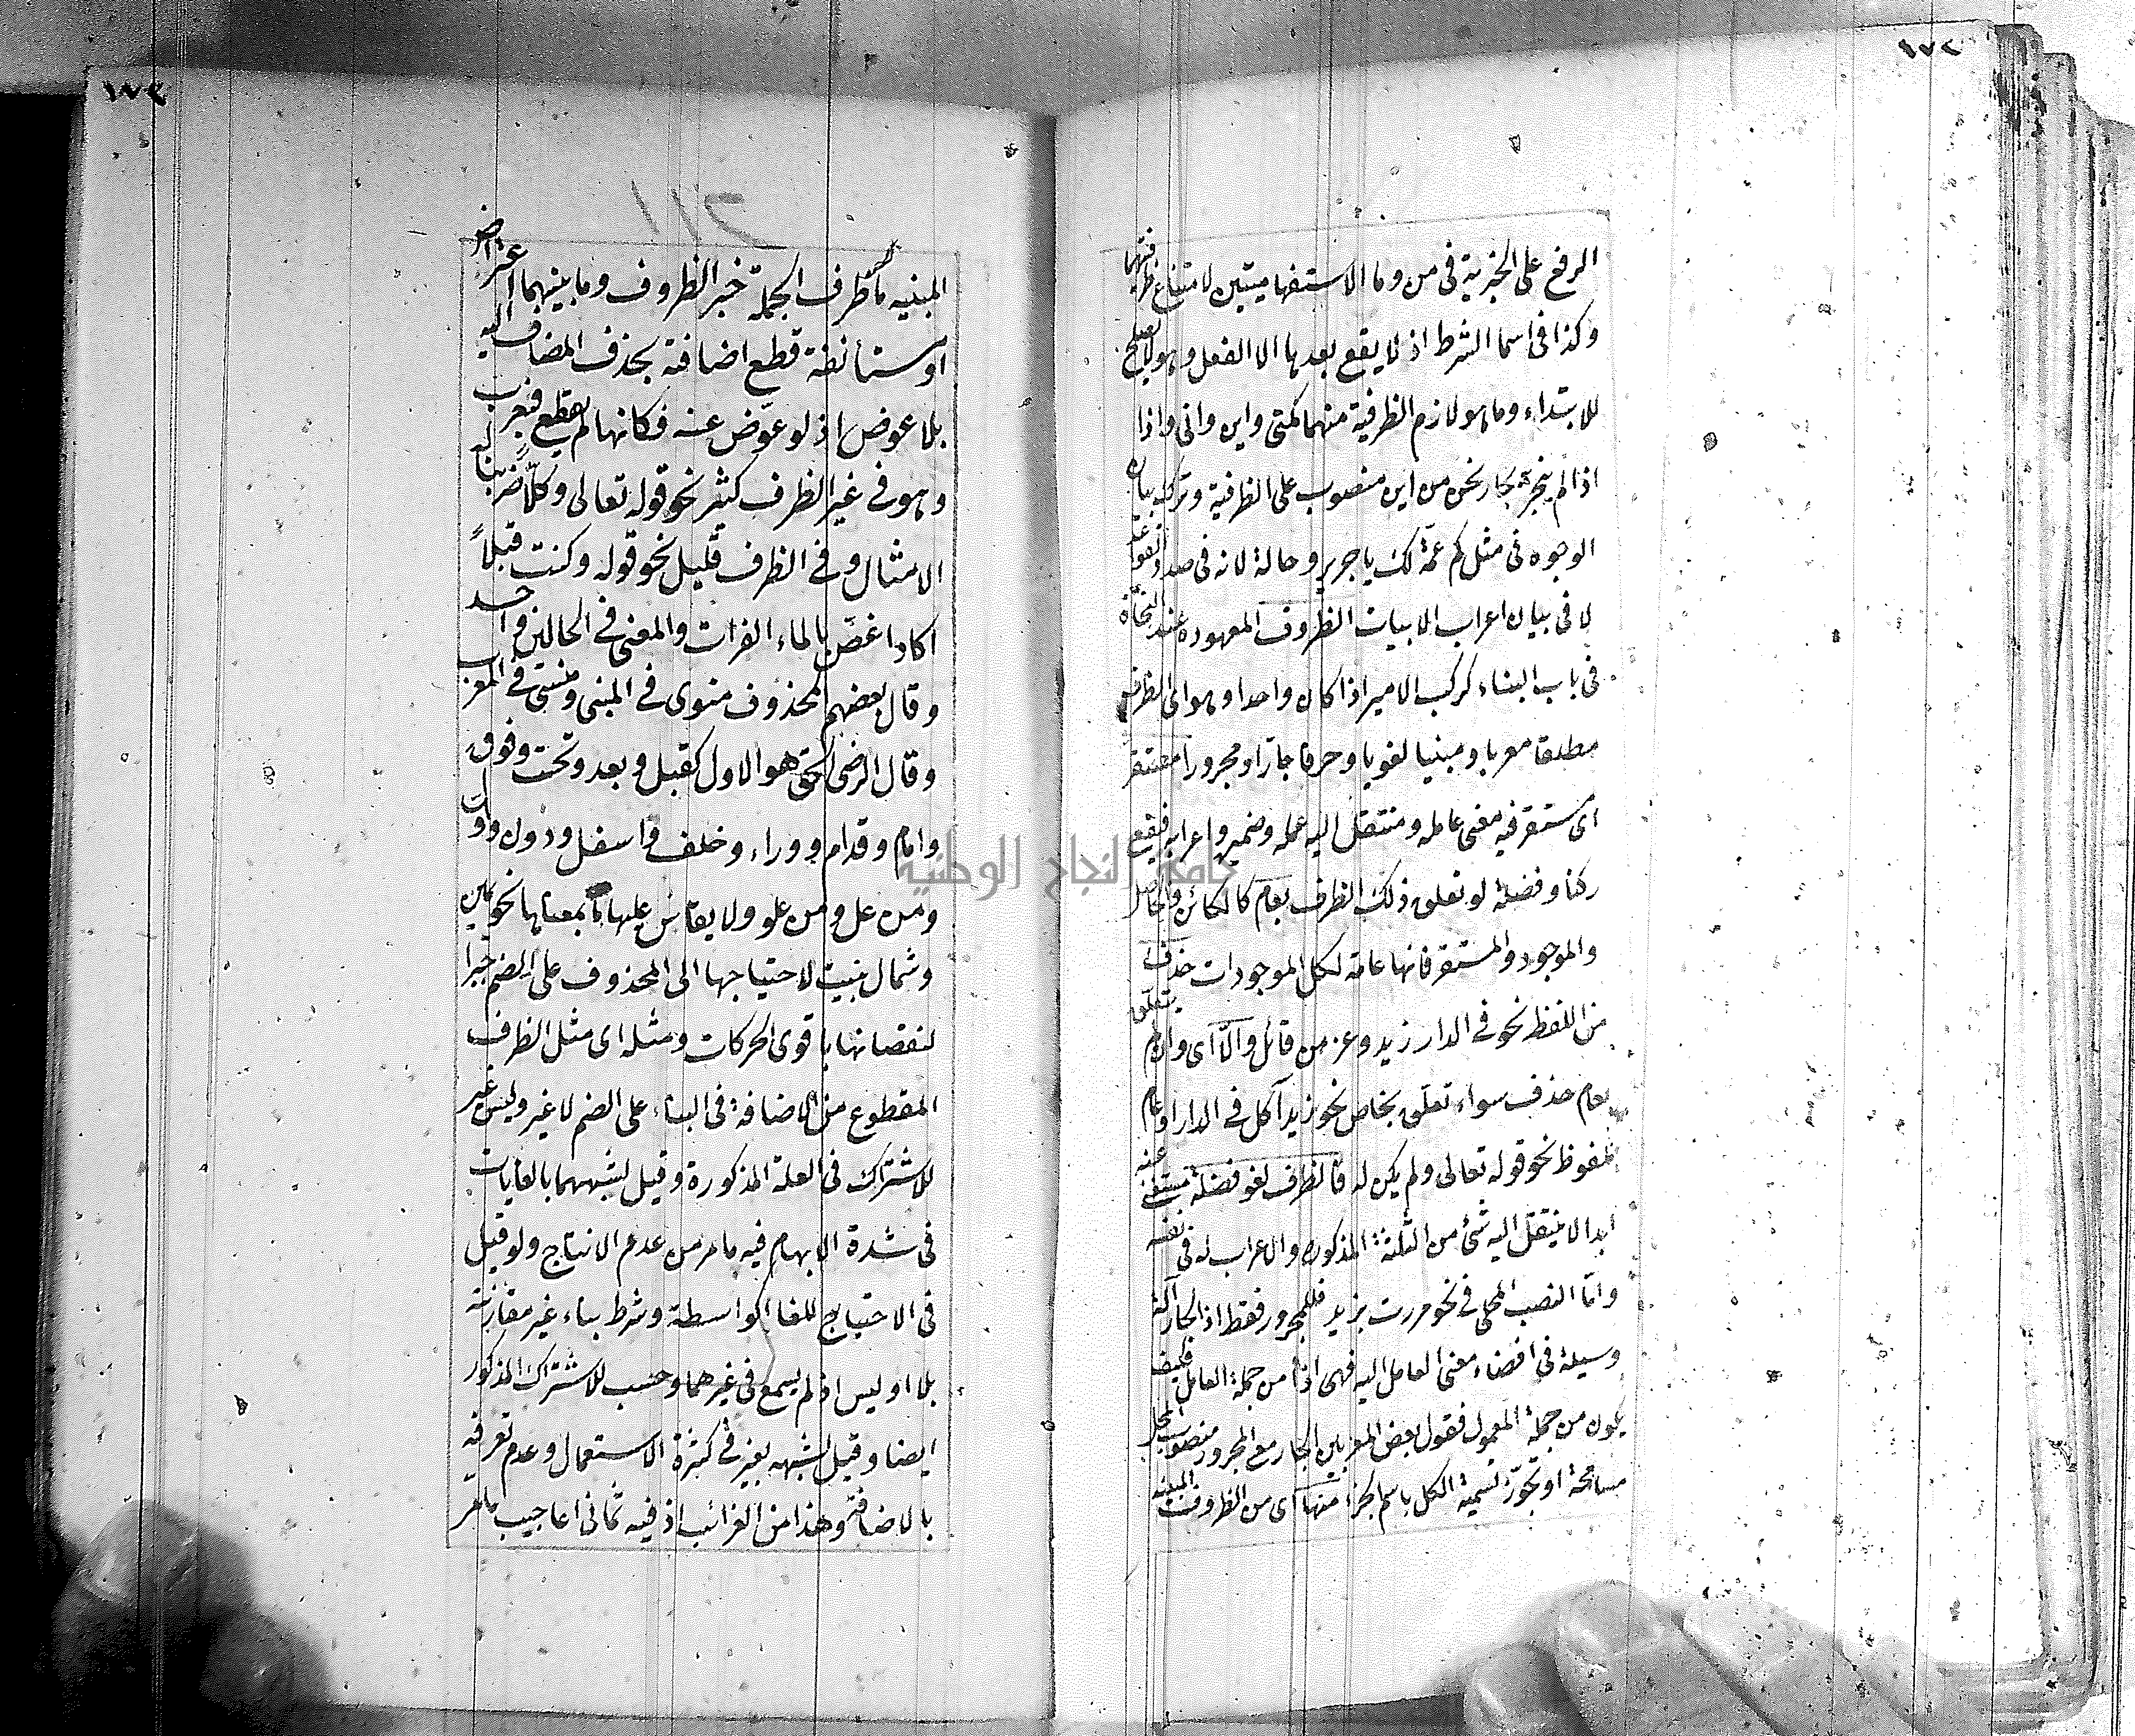 ١٧٢
الرفع على الخبرية في من وما الاستفهاميتين لامتناع ظرفيتهما
وكذا في اسما الشرط اذ لا يقع بعدها الا الفعل وهو لا يصلح
للابتداء وما هو لازم الظرفية منهما كمتى واين وانى واذا
اذا لم ينجر بجار نحو من اين منصوب على الظرفية وترك بيان
الوجوه في مثل كم عمة لك يا جرير وخالة لانه في صدد القواعد
لا في بيان اعراب الابيات الظروف المعهودة عند النحاة
في باب البناء كركب الامير اذا كان واحدا وهو اى الظرف
مطلقا معربا ومبنيا لغويا وحرفا جارّا ومجرورا مستقر
اى مستقر فيه معنى عامله ومنتقل اليه عمله وضميره واعرابه فيقع
ركنا وفضلة لو تعلق ذلك الظرف بعام كالكائن والحاصل
والموجود والمستقر فانها عامة لكل الموجودات حذف
من اللفظ نحو في الدار زيد وعز من قائل والّا اى وان لم يتعلق
بعام حذف سواء تعلق بخاص نحو زيد آكل في الدار او عام
ملفوظ نحو قوله تعالى ولم يكن له فالظرف لغو فضلة مستغنى عنه
ابدا لا ينتقل اليه شئ من الثلثة المذكورة والاعراب له في نفسه
وامّا النصب المحلى في نحو مررت بزيد فللمجرور فقط اذ الجار آلة
وسيلة في افضاء معنى العامل اليه فهى اذا من جملة العامل فكيف
يكون من جملة المعمول فقول بعض المعربين الجار مع المجرور منصوب المحل
مسامحة او تجوّز تسمية الكل باسم الجزء منها اى من الظروف المبنية
١٧٣
١١٢
المبنية ما ظرف الجملة خبر الظروف وما بينهما اعتراض
او مستأنفة قطع اضافته بحذف المضاف اليه
بلا عوض اذ لو عوّض عنه فكانها لم يقطع فتعرب
وهو في غير الظرف كثير نحو قوله تعالى وكلّا ضربنا له
الامثال وفي الظرف قليل نحو قوله وكنت قبلاً
اكاد اغصّ بالماء الفرات والمعنى في الحالين واحد
وقال بعضهم المحذوف منوى في المبنى ومنسى في المعرب
وقال الرضى الحق هو الاول كقبل وبعد وتحت وفوق
وامام وقدام ووراء وخلف واسفل ودون واول
ومن عل ومن علو ولا يقاس عليها ما بمعناها نحو يمين
وشمال بنيت لاحتياجها الى المحذوف على الضم جبرا
لنقصانها باقوى الحركات ومثله اى مثل الظرف
المقطوع من الاضافة في البناء على الضم لا غير وليس غير
للاشتراك في العلة المذكورة وقيل لشبههما بالغايات
في شدة الابهام فيه ما مر من عدم الانتاج ولو قيل
في الاحتياج للغا كواسطة وشرط بناء غير مقارنته
بلا او ليس اذ لم يسمع في غيرهما وحسب للاشتراك المذكور
ايضا وقيل لشبهه بغير في كثرة الاستعمال وعدم تعرفه
بالاضافة وهذا من الغرائب اذ فيه ثمانى اعاجيب
جامعة النجاح الوطنية